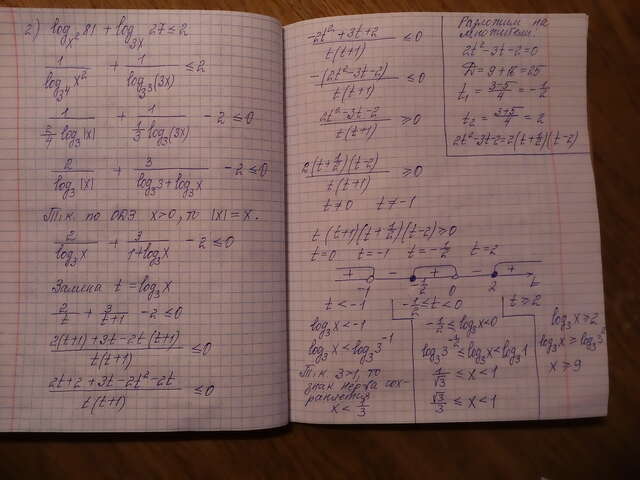 2) log_{x²} 81 + log_{3x} 27 ≤ 2
1/(log_{3⁴} x²) + 1/(log_{3³} (3x)) ≤ 2
1/(2/4 log₃|x|) + 1/(1/3 log₃(3x)) - 2 ≤ 0
2/(log₃|x|) + 3/(log₃3 + log₃x) - 2 ≤ 0
Т.к. по ОДЗ x>0, то |x| = x.
2/(log₃x) + 3/(1+log₃x) - 2 ≤ 0
Замена t = log₃x
2/t + 3/(t+1) - 2 ≤ 0
(2(t+1)+3t-2t(t+1))/(t(t+1)) ≤ 0
(2t+2+3t-2t²-2t)/(t(t+1)) ≤ 0
(-2t²+3t+2)/(t(t+1)) ≤ 0
(-(2t²-3t-2))/(t(t+1)) ≤ 0
(2t²-3t-2)/(t(t+1)) ≥ 0
(2(t+1/2)(t-2))/(t(t+1)) ≥ 0
t≠0 t≠-1
t(t+1)(t+1/2)(t-2) ≥ 0
t=0 t=-1 t=-1/2 t=2
+ - + - +
-1 -1/2 0 2 t
t < -1
log₃x < -1
log₃x < log₃3⁻¹
Т.к 3>1, то
знак нер-ва сох-
раняется
x < 1/3
-1/2 ≤ t < 0
-1/2 ≤ log₃x < 0
log₃3^{-1/2} ≤ log₃x < log₃1
1/√3 ≤ x < 1
√3/3 ≤ x < 1
t ≥ 2
log₃x ≥ 2
log₃x ≥ log₃3²
x ≥ 9
Разложим на
множители:
2t²-3t-2=0
D = 9+16 = 25
t₁ = (3-5)/4 = -1/2
t₂ = (3+5)/4 = 2
2t²-3t-2=2(t+1/2)(t-2)